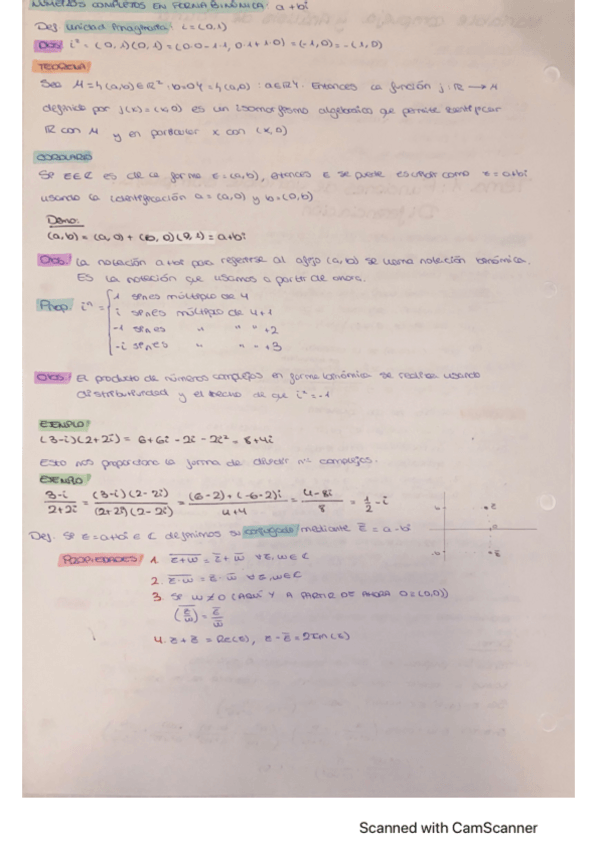 NÚMEROS COMPLEJOS EN FORMA BINÓMICA: a+bi
Def Unidad Imaginaria: i=(0,1)
Obs/ i² = (0,1)(0,1) = (0·0-1·1, 0·1+1·0) = (-1,0) = -(1,0)
TEOREMA
Sea M={(a,b)∈R² : b=0} = {(a,0) : a∈R}. Entonces la función j: R → M
definida por j(x)=(x,0) es un isomorfismo algebraico que permite identificar
R con M y en particular x con (x,0)
COROLARIO
Si z∈C es de la forma z=(a,b), entonces z se puede escribir como z=a+bi
usando la identificación a=(a,0) y b=(b,0)
Demo:
(a,b) = (a,0) + (b,0)(0,1) = a+bi
Obs/ La notación a+bi para referirse al afijo (a,b) se llama notación binómica.
Es la notación que usamos a partir de ahora.
Prop. iⁿ = 1 si n es múltiplo de 4
i si n es múltiplo de 4+1
-1 si n es " " " +2
-i si n es " " " +3
Obs/ El producto de números complejos en forma binómica se realiza usando
distributividad y el hecho de que i²=-1
EJEMPLO/
(3-i)(2+2i) = 6+6i-2i-2i² = 8+4i
Esto nos proporciona la forma de dividir nº complejos.
EJEMPLO/
3-i/2+2i = (3-i)(2-2i)/(2+2i)(2-2i) = (6-2)+(-6-2)i/4+4 = 4-8i/8 = 1/2 - i
Def. Si z=a+bi∈C definimos su conjugado mediante z̅=a-bi
PROPIEDADES/ 1. z+w̅ = z̅+w̅ ∀z,w∈C
2. z·w̅ = z̅·w̅ ∀z,w∈C
3. Si w≠0 (AQUÍ Y A PARTIR DE AHORA 0=(0,0))
(z/w)̅ = z̅/w̅
4. z+z̅ = Re(z), z-z̅ = 2Im(z)
Scanned with CamScanner